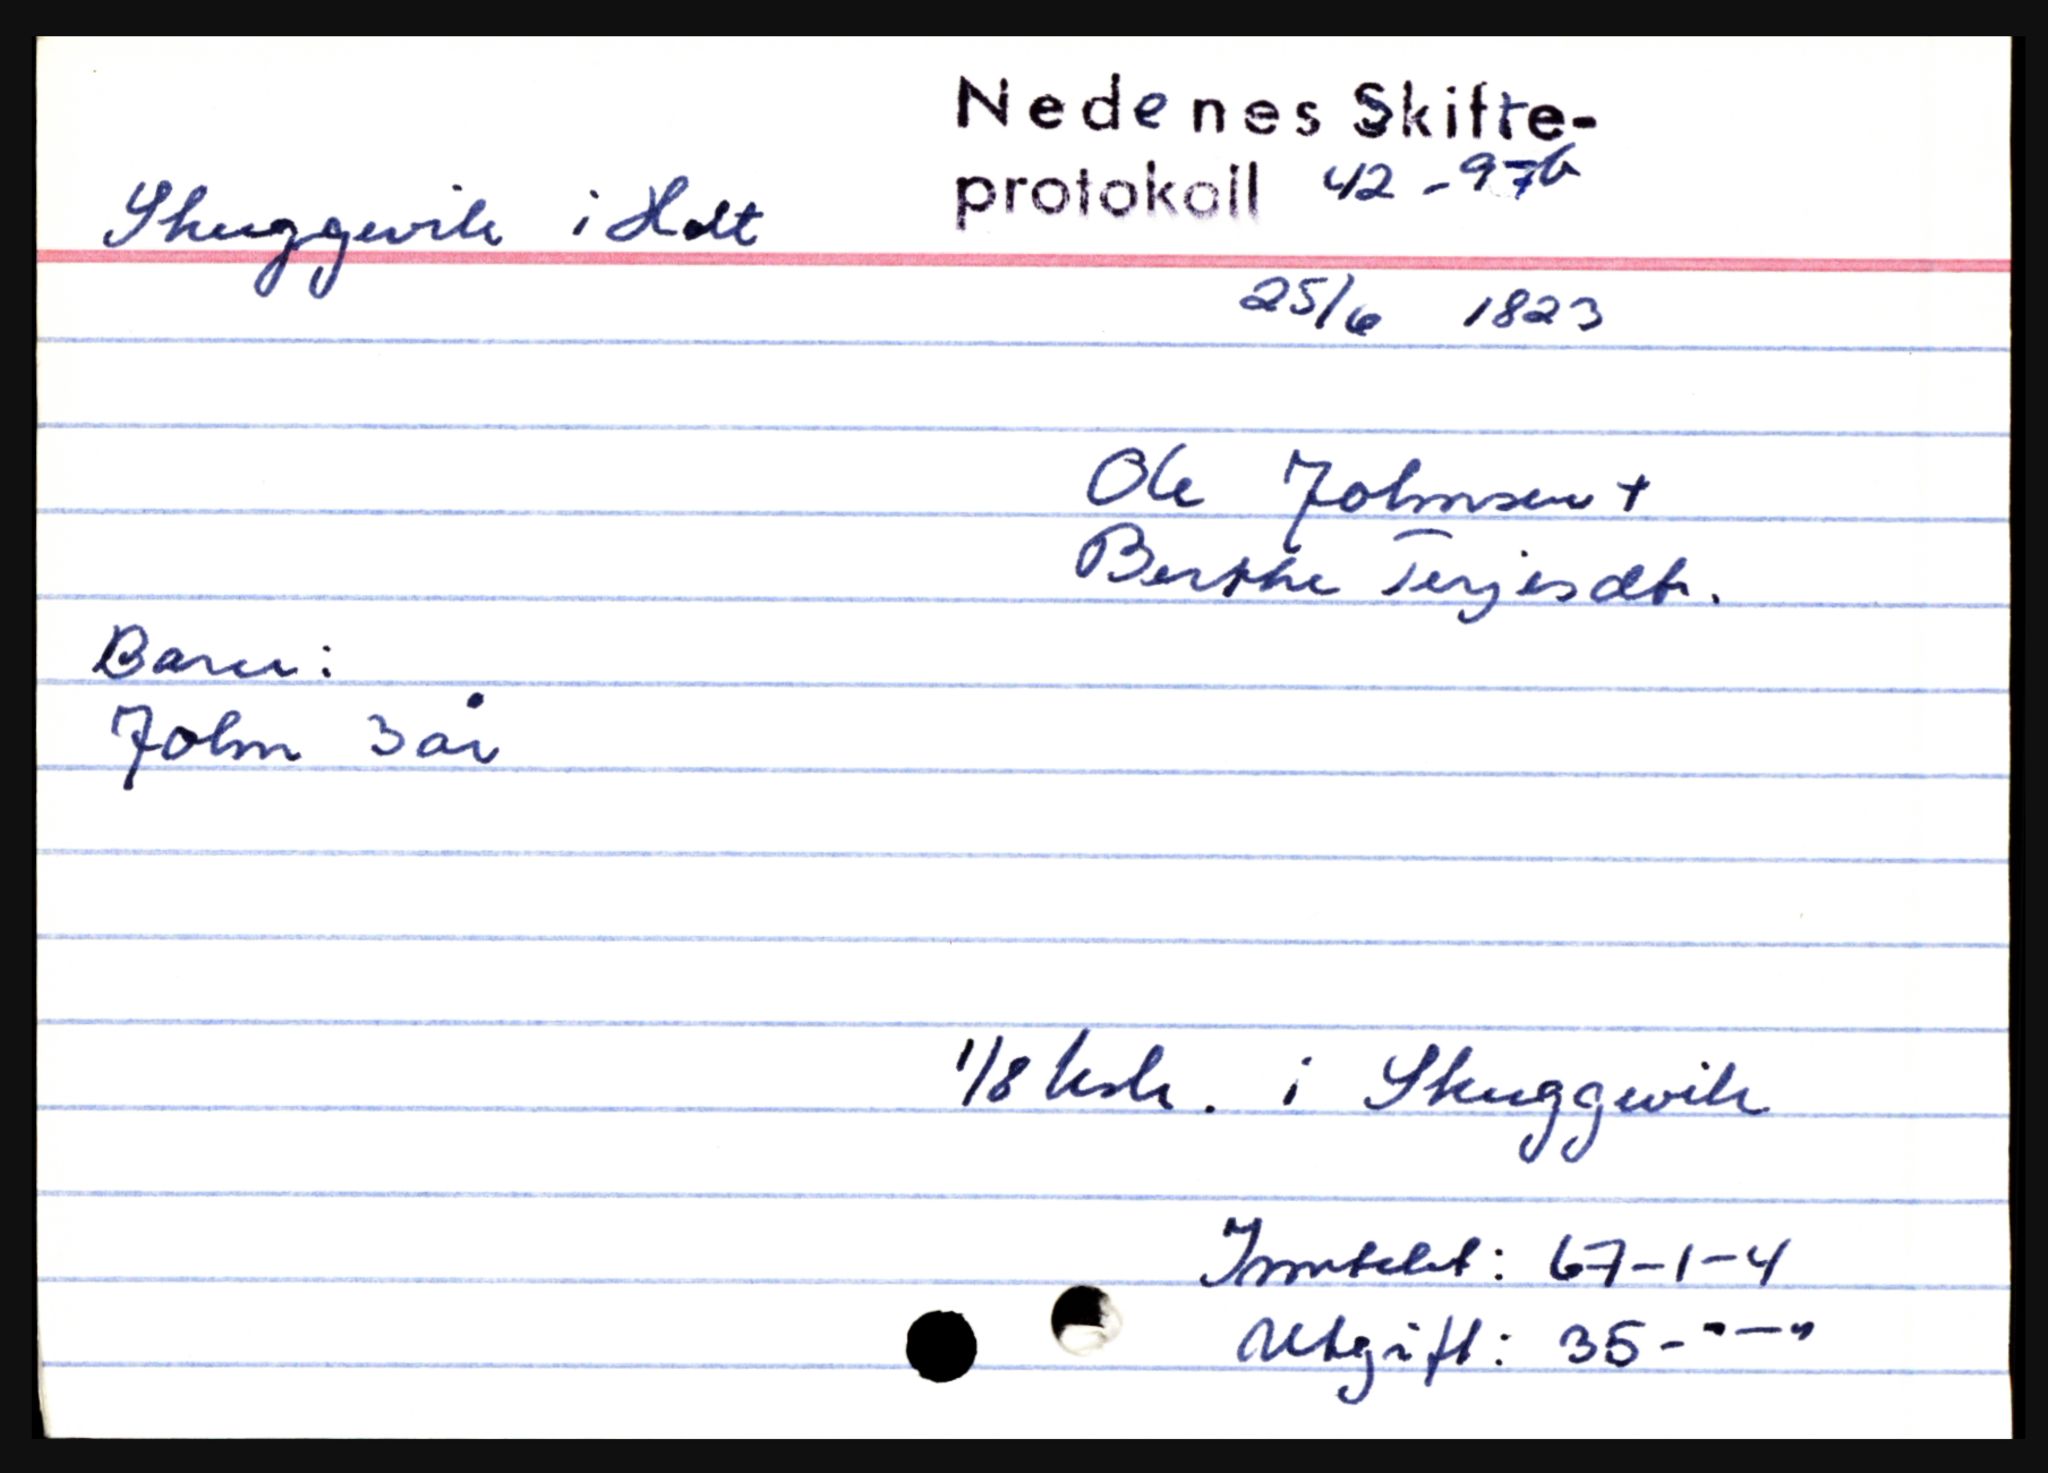 Nedenes Skifte-
protokoll 42-97b
Skuggevik i Holt
25/6 1823
Ole Johnsen +
Berthe Terjesdtr.
Barn:
John 3 år
1/8 hud. i Skuggevik
Inntekt: 67-1-4
Utgift: 35-"-"